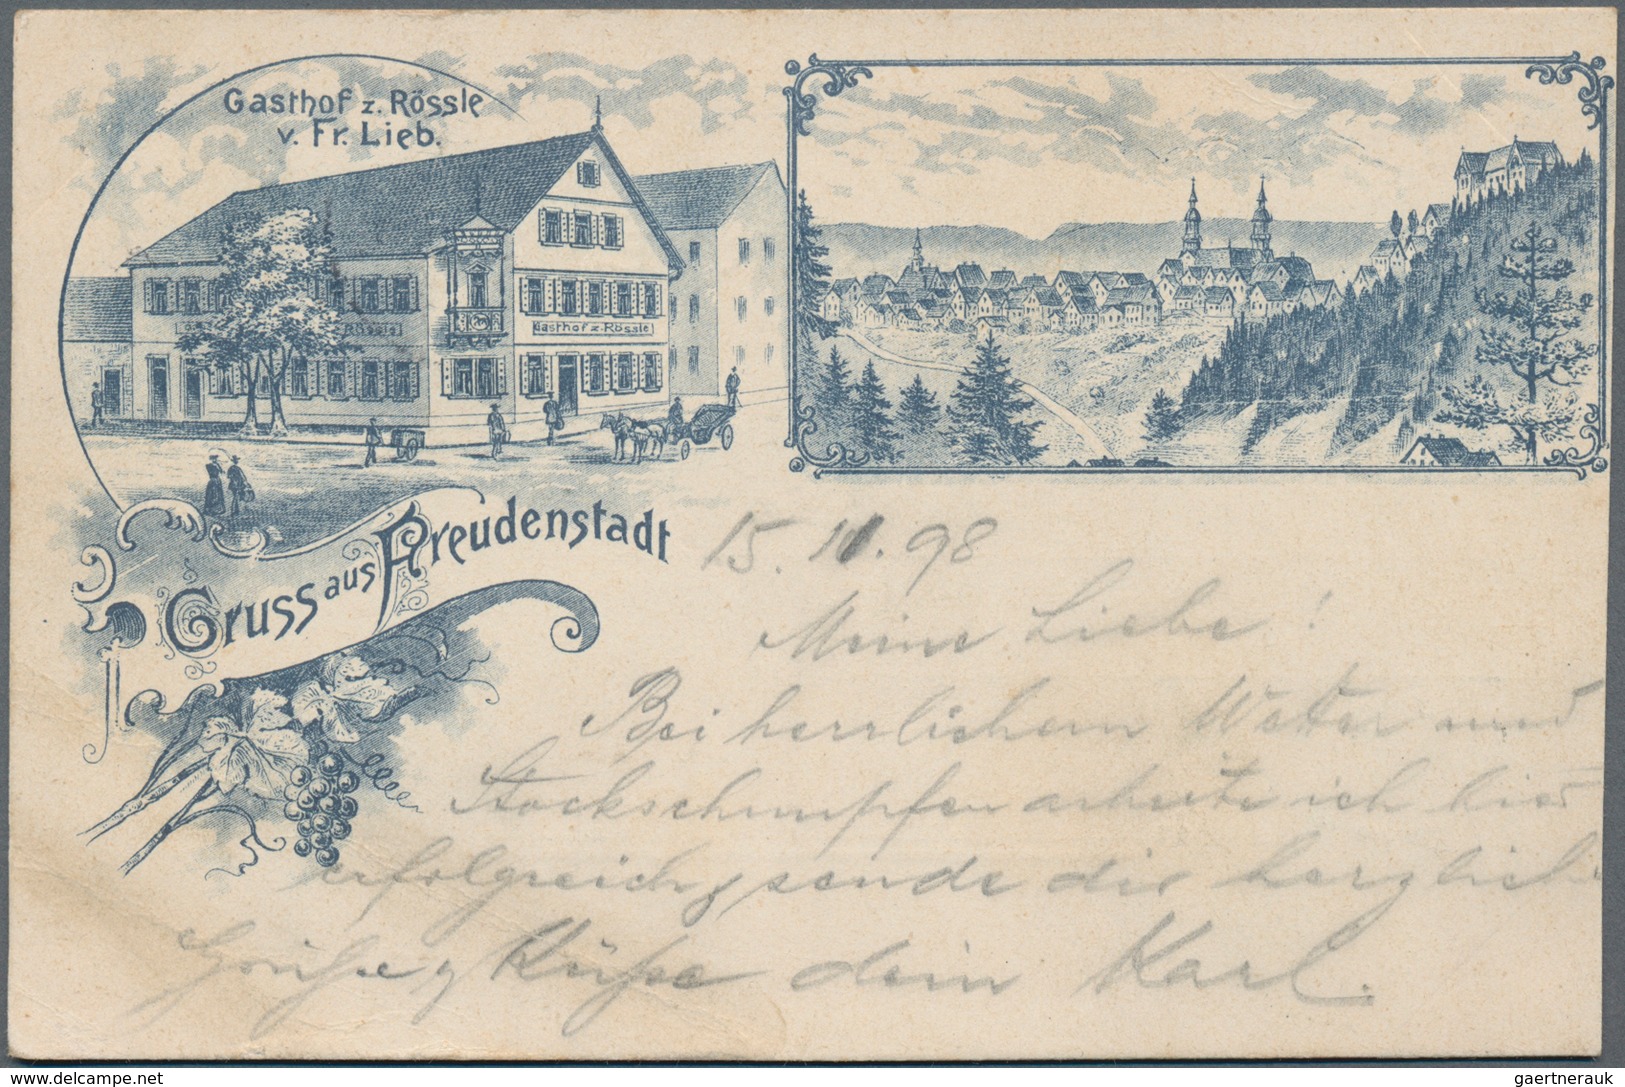 Gasthof z. Rössle
v. Fr. Lieb.
Rössle
Gasthof z. Rössle
Gruss aus Freudenstadt
15. 11. 98
Meine Liebe!
Bei herrlichem Wetter und
Stockschnupfen arbeite ich hier
erfolgreich & sende dir herzliche
Grüße & Küße dein Karl.
© www.delcampe.net
gaertnerauk